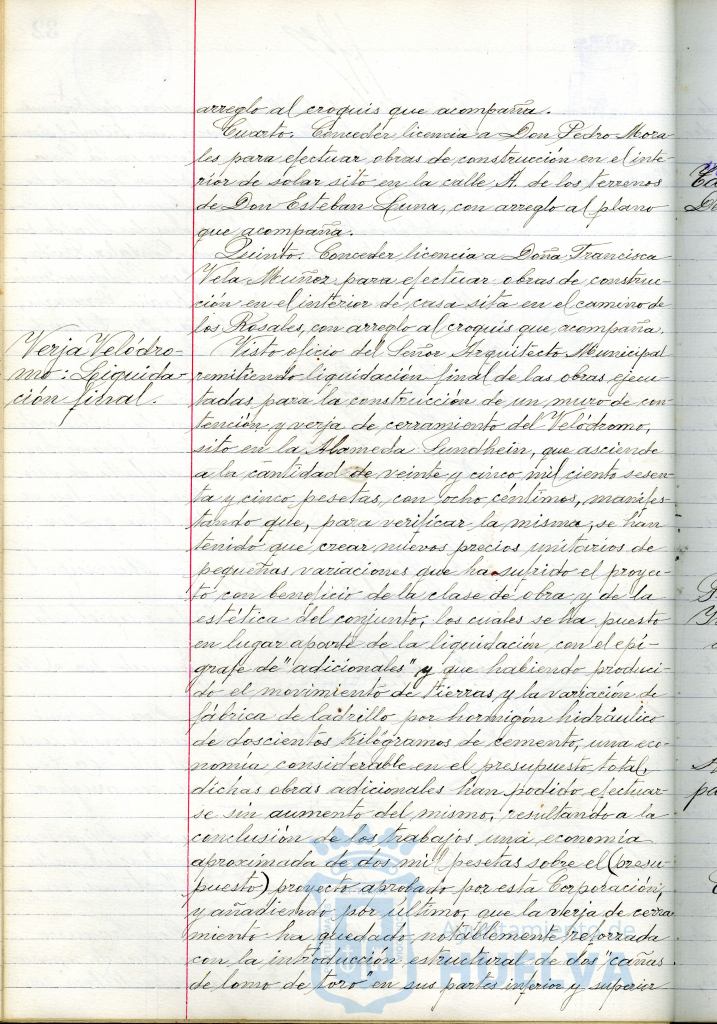 arreglo al croquis que acompaña.
Cuarto. Conceder licencia a Don Pedro Mora-
les para efectuar obras de construcción en el inte-
rior de solar sito en la calle A. de los terrenos
de Don Esteban Luna, con arreglo al plano
que acompaña.
Quinto. Conceder licencia a Doña Francisca
Vela Muñoz para efectuar obras de construc-
ción en el interior de casa sita en el camino de
los Rosales, con arreglo al croquis que acompaña.
Verja Velódro-
mo: Liquida-
ción final.
Visto oficio del Señor Arquitecto Municipal
remitiendo liquidación final de las obras ejecu-
tadas para la construcción de un muro de con-
tención y verja de cerramiento del Velódromo,
sito en la Alameda Sundhein, que asciende
a la cantidad de veinte y cinco mil ciento sesen-
ta y cinco pesetas, con ocho céntimos, manifes-
tando que, para verificar la misma, se han
tenido que crear nuevos precios unitarios de
pequeñas variaciones que ha sufrido el proyec-
tó con beneficio de la clase de obra y de la
estética del conjunto, los cuales se ha puesto
en lugar aparte de la liquidación con el epí-
grafe de "adicionales" y que habiendo produci-
do el movimiento de tierras, y la variación de
fábrica de ladrillo por hormigón hidráulico
de doscientos kilógramos de cemento, una eco-
nomía considerable en el presupuesto total,
dichas obras adicionales han podido efectuar-
se sin aumento del mismo, resultando a la
conclusión de los trabajos una economía
aproximada de dos mil pesetas sobre el (presu-
puesto) proyecto aprobado por esta Corporación,
y añadiendo por último, que la verja de cerra-
miento ha quedado notablemente reforzada
con la introducción estructural de dos "cañas
de lomo de toro" en sus partes inferior y superior
Ayuntamiento de
HUELVA